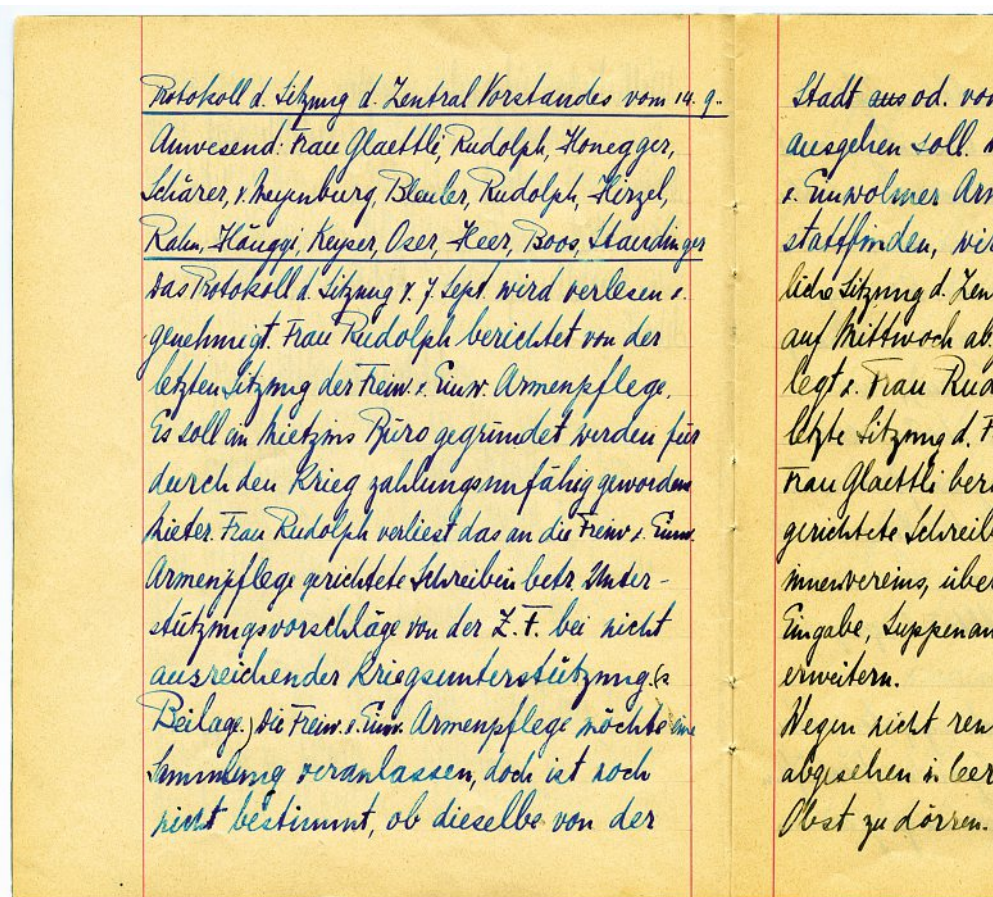 Protokoll d. Sitzung d. Zentral Vorstandes vom 14. 9.
Anwesend: Frau Glaettli, Rudolph, Honegger,
Schärer, v. Meyenburg, Bleuler, Rudolph, Hirzel,
Rahn, Hänggi, Keyser, Oser, Heer, Boos, Staudinger
Das Protokoll d. Sitzung v. 7. Sept. wird verlesen u.
genehmigt. Frau Rudolph berichtet von der
letzten Sitzung der Freiw. u. Einw. Armenpflege.
Es soll ein Mietzins Büro gegründet werden für
durch den Krieg zahlungsunfähig gewordene
Mieter. Frau Rudolph verliest das an die Freiw. u. Einw.
Armenpflege gerichtete Schreiben betr. Unter-
stützungsvorschläge von der Z. F. bei nicht
ausreichender Kriegsunterstützung. (s.
Beilage.) Die Freiw. u. Einw. Armenpflege möchte eine
Sammlung veranlassen, doch ist noch
nicht bestimmt, ob dieselbe von der
Stadt aus od. von
ausgehen soll.
u. Einwohner Arm
stattfinden, wir
liche Sitzung d. Zen
auf Mittwoch ab
legt u. Frau Rud
letzte Sitzung d. F
Frau Glaettli beri
gerichtete Schreib
innenvereins, über
Eingabe, Suppenan
erweitern.
Wegen nicht ren
abgesehen in leer
Obst zu dörren.